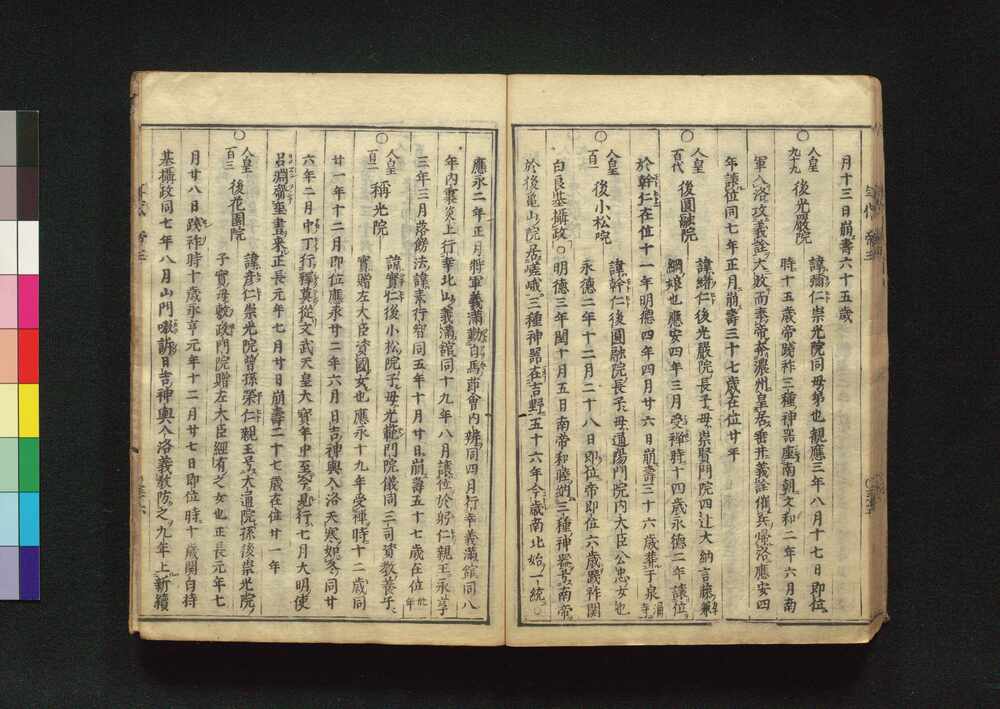 月十三日崩壽六十五歳
○人皇九十九 後光嚴院 諱彌仁崇光院同母弟也觀應三年八月十七日即位
時十五歳帝踐祚三種神器座南朝文和二年六月南
軍入洛攻義詮大敗而奉帝於濃州皇居垂井義詮催兵歸洛應安四
年讓位同七年正月崩壽三十七歳在位廿年
○人皇百代 後圓融院 諱緒仁後光嚴院長子母崇賢門院四辻大納言藤兼綱
娘也應安四年三月受禪時十四歳永德二年讓位
於幹仁在位十一年明德四年四月廿六日崩壽三十六歳葬于泉涌寺
○人皇百一 後小松院 諱幹仁後圓融院長子母通陽門院内大臣公忠女也
永德二年十二月二十八日即位帝即位六歳踐祚関
白良基攝政○明德三年閏十月五日南帝和睦三種神器南帝
於後亀山院居嵯峨三種神器在吉野五十六年今歳南北始一統○
應永二年正月將軍義滿勤白馬節會内辨同四月行幸義滿舘同八
年内裏炎上行幸北山義滿舘同十九年八月讓位於躬仁親王永享
三年三月落飾法諱素行智同五年十月廿日崩壽五十七歳在位卅年
○人皇百二 稱光院 諱實仁後小松院子母光範門院儀同三司資教養子
實贈左大臣資國女也應永十九年受禪時十二歳同
廿一年十二月即位應永廿二年六月日吉神輿入洛天寒如冬同廿
六年二月中丁行釋奠從文武天皇大寶年中至今是行七月大明使
呂淵帝璽書來正長元年七月廿日崩壽二十七歳在位廿一年
○人皇百三 後花園院 諱彦仁崇光院曾孫榮仁親王号大通院孫後崇光院
子實母敷政門院贈左大臣經有之女也正長元年七
月廿八日踐祚時十歳永亨元年十二月廿七日即位時十歳関白持
基攝政同七年八月山門嗷訴日吉神輿入洛義敎防之九年上新續